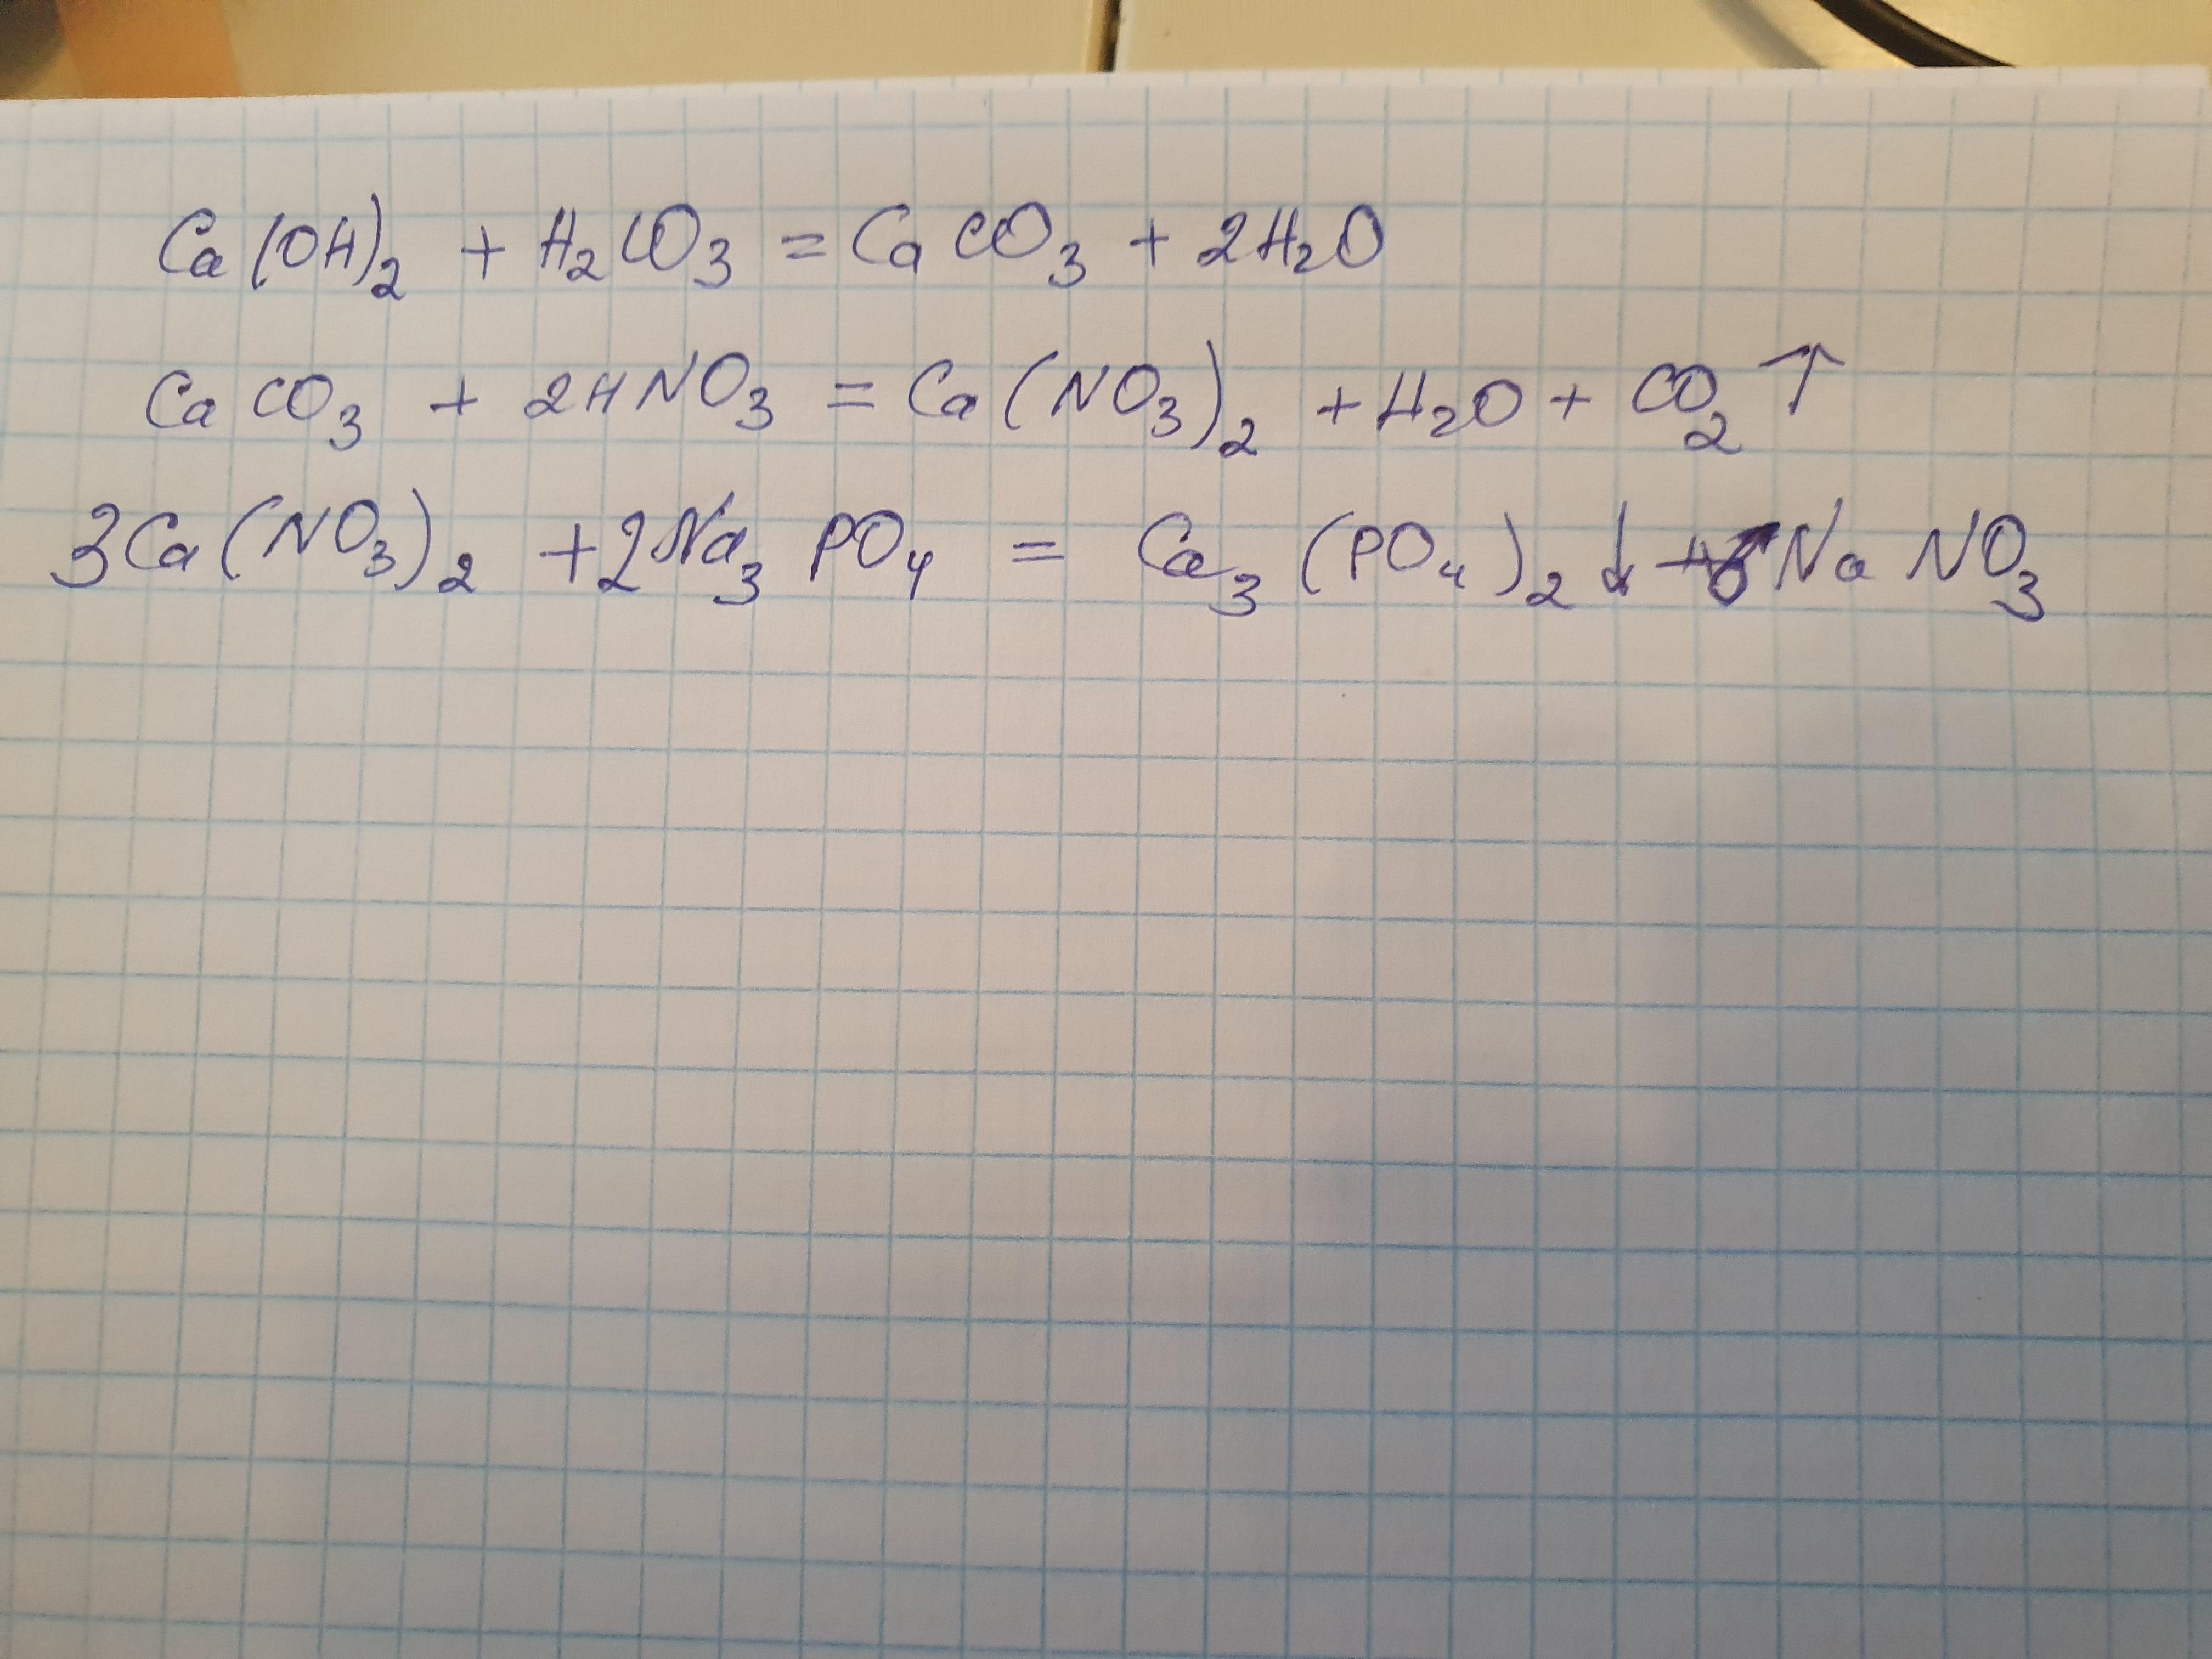 Ca(OH)₂ + H₂CO₃ = CaCO₃ + 2H₂O
CaCO₃ + 2HNO₃ = Ca(NO₃)₂ + H₂O + CO₂↑
3Ca(NO₃)₂ + 2Na₃PO₄ = Ca₃(PO₄)₂↓ + 6NaNO₃